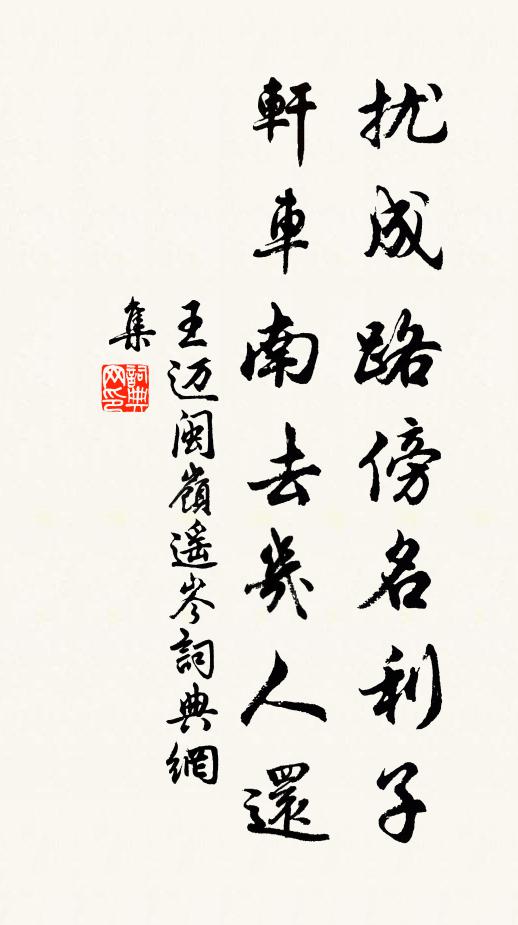 扰成路傍名利子
軒車南去幾人還
王迈闽嶺遥岑詞典網
集
詞典网印